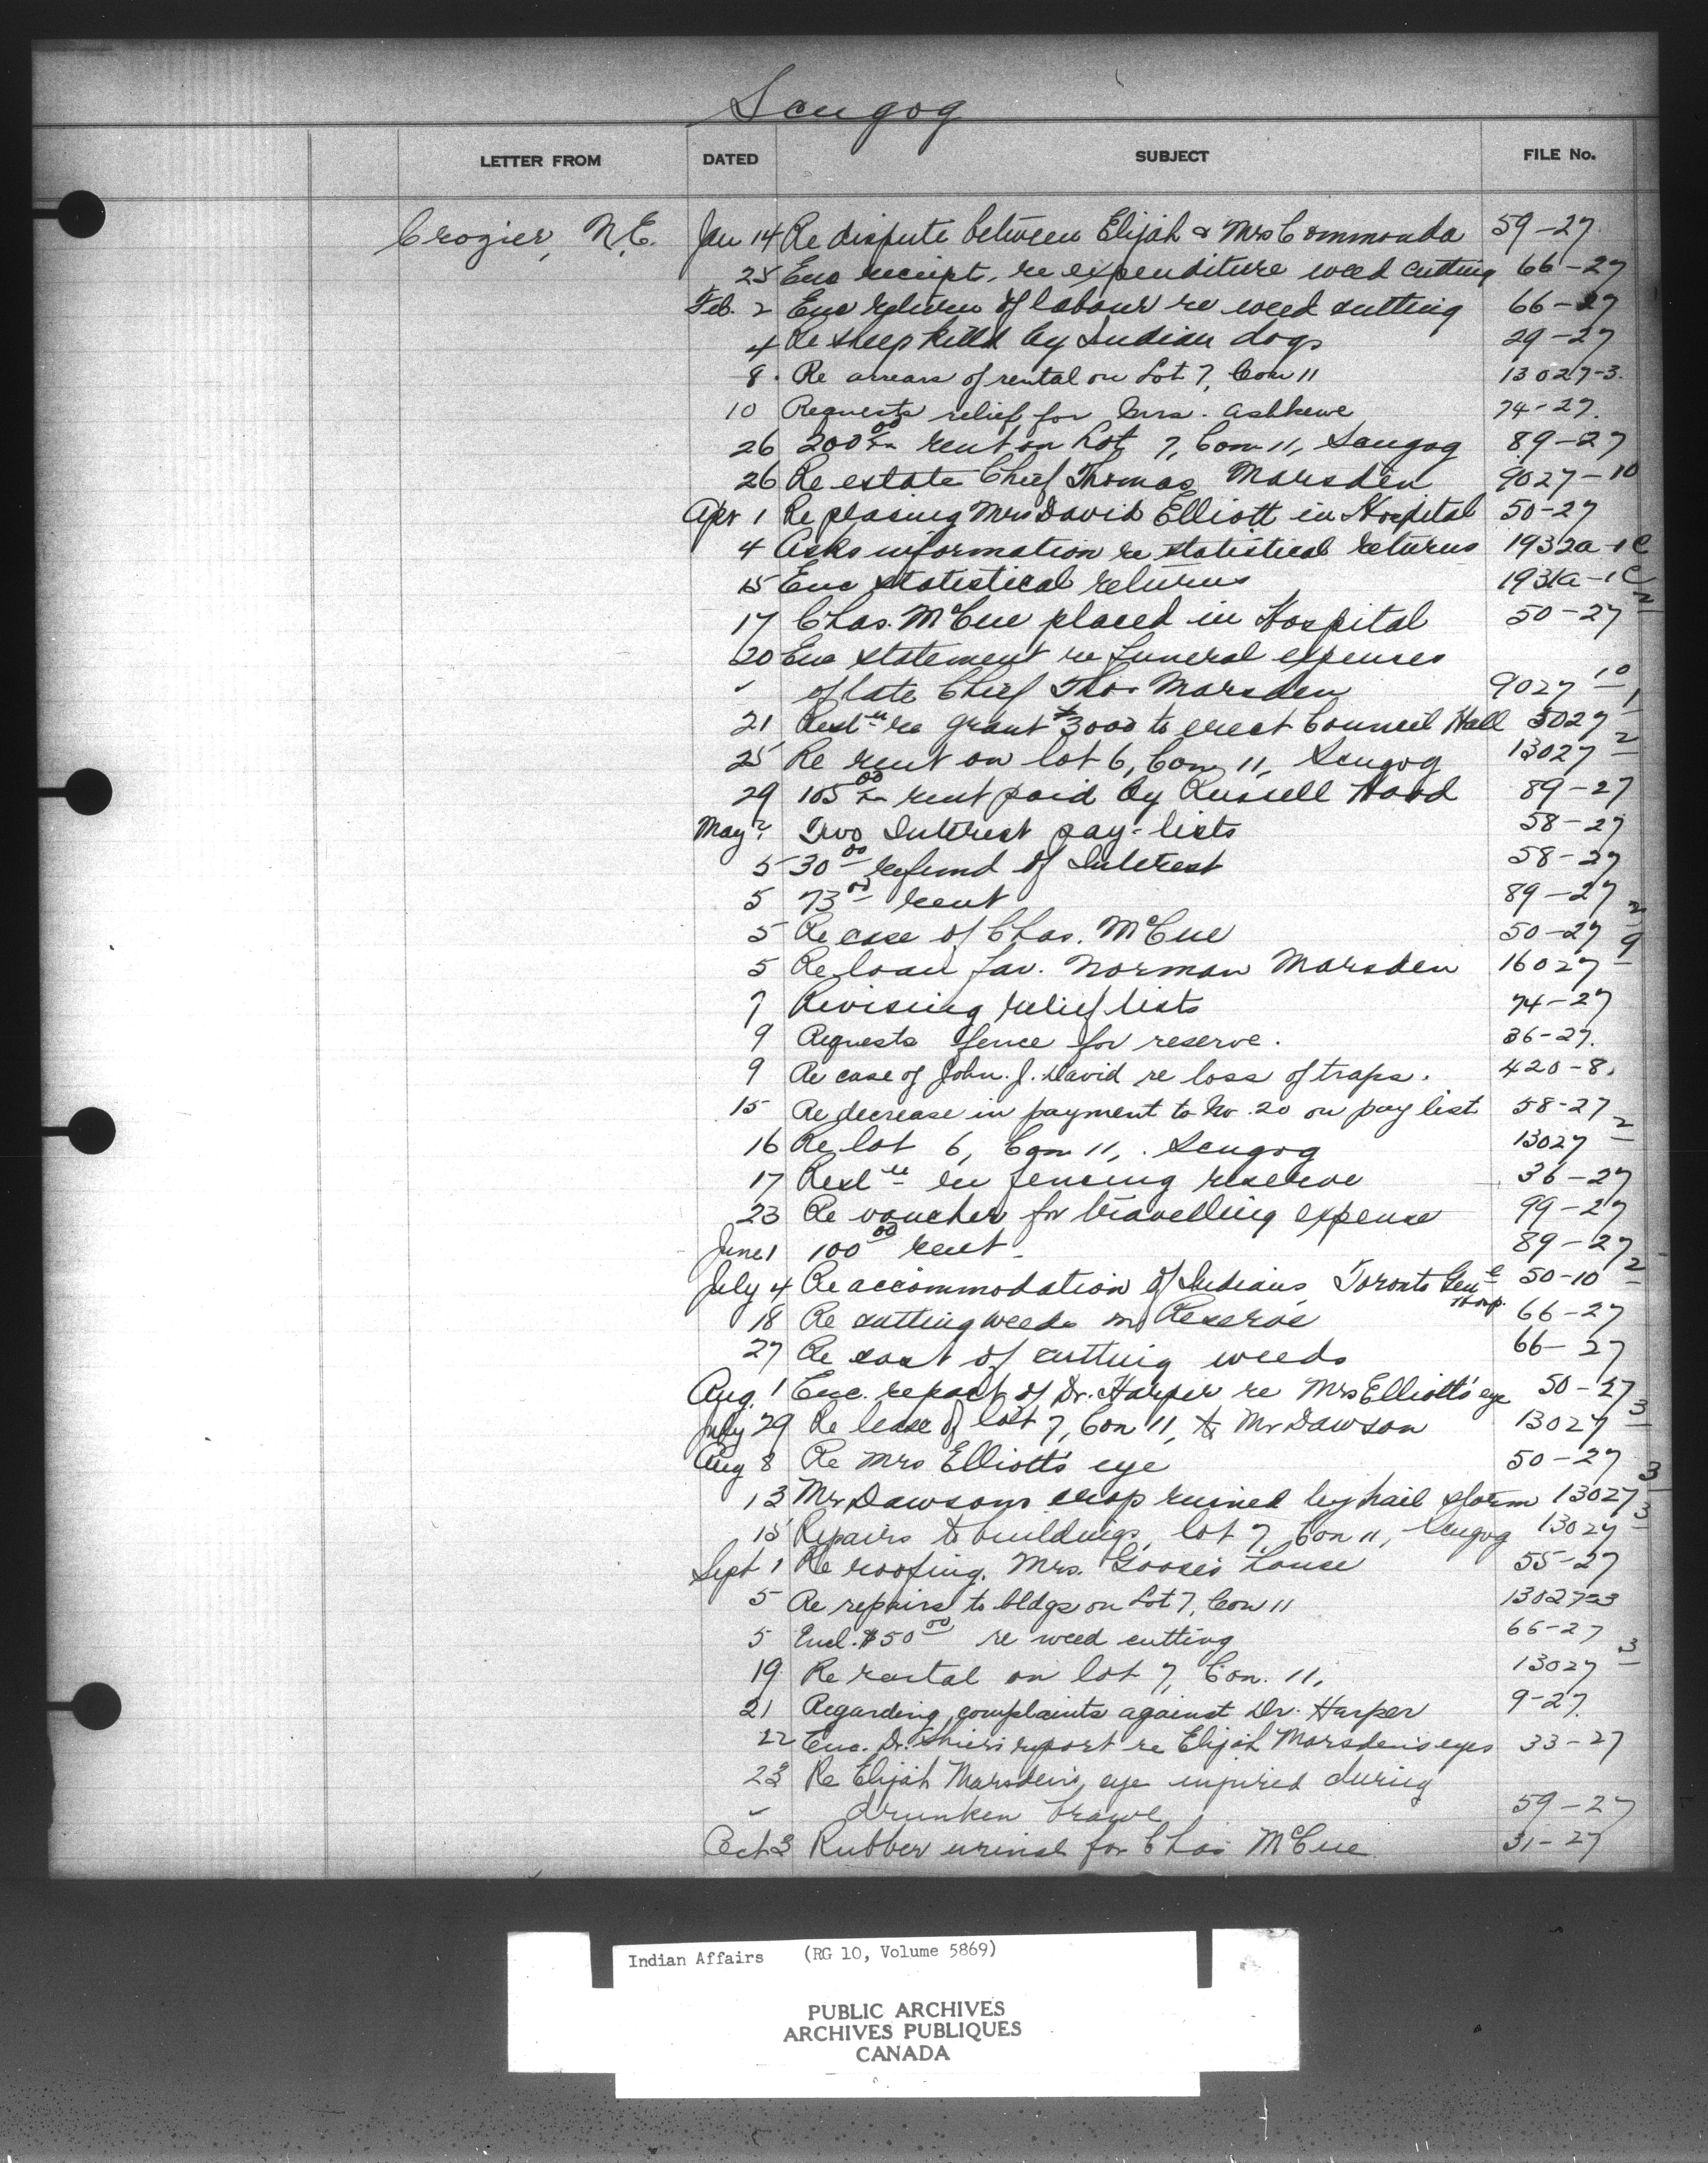 Scugog
LETTER FROM DATED SUBJECT FILE No.
Crozier, N.E. Jan 14 Re dispute between Elijah & Mrs Commonda 59-27
25 Enc receipt, re expenditure weed cutting 66-27
Feb. 2 Enc return of labour re weed cutting 66-27
4 Re sheep killed by Indian dogs 29-27
8. Re arrears of rental on Lot 7, Con 11 13027-3.
10 Requests relief for Mrs. Ashkewe 74-27.
26 200 00 rent on Lot 7, Con 11, Scugog 89-27
26 Re estate Chief Thomas Marsden 9027-10
Apr 1 Re placing Mrs David Elliott in Hospital 50-27
4 Asks information re statistical returns 1932a-1C
15 Enc statistical returns 1931a-1C
17 Chas. McCue placed in Hospital 50-27 2
20 Enc statement re funeral expenses
" of late Chief Thos Marsden 9027-10
21 Resl'n re grant $3000 to erect Council Hall 5027-1
25 Re rent on lot 6, Con 11, Scugog 13027-2
29 105 00 rent paid by Russell Hood 89-27
May 2 Two Interest pay-lists 58-27
5 30 00 refund of Interest 58-27
5 73 00 rent 89-27
5 Re case of Chas. McCue 50-27 2
5 Re loan fav. Norman Marsden 16027-9
7 Revising relief lists 74-27
9 Requests fence for reserve. 36-27.
9 Re case of John. J. David re loss of traps. 420-8.
15 Re decrease in payment to No. 20 on pay list 58-27
16 Re lot 6, Con 11, Scugog 13027-2
17 Resl'n re fencing reserve 36-27
23 Re voucher for travelling expense 99-27
June 1 100 00 rent 89-27
July 4 Re accommodation of Indians, Toronto Gen'l Hosp. 50-10-2
18 Re cutting weeds on Reserve 66-27
27 Re cost of cutting weeds 66-27
Aug. 1 Enc. report of Dr. Harper re Mrs Elliott's eye 50-27
July 29 Re lease of lot 7, Con 11, to Mr Dawson 13027-3
Aug 8 Re Mrs Elliott's eye 50-27
13 Mr Dawsons crop ruined by hail storm 13027-3
15 Repairs to buildings, lot 7, Con 11, Scugog 13027-3
Sept 1 Re roofing. Mrs. Goose's house 55-27
5 Re repairs to bldgs on Lot 7, Con 11 13027-3
5 Encl. $50 00 re weed cutting 66-27
19 Re rental on lot 7, Con. 11, 13027-3
21 Regarding complaints against Dr. Harper 9-27.
22 Enc. Dr. report re Elijah Marsden's eyes 33-27
23 Re Elijah Marsden's eye injured during
" drunken brawl 59-27
Oct 3 Rubber urinal for Chas McCue 31-27
Indian Affairs (RG 10, Volume 5869)
PUBLIC ARCHIVES
ARCHIVES PUBLIQUES
CANADA